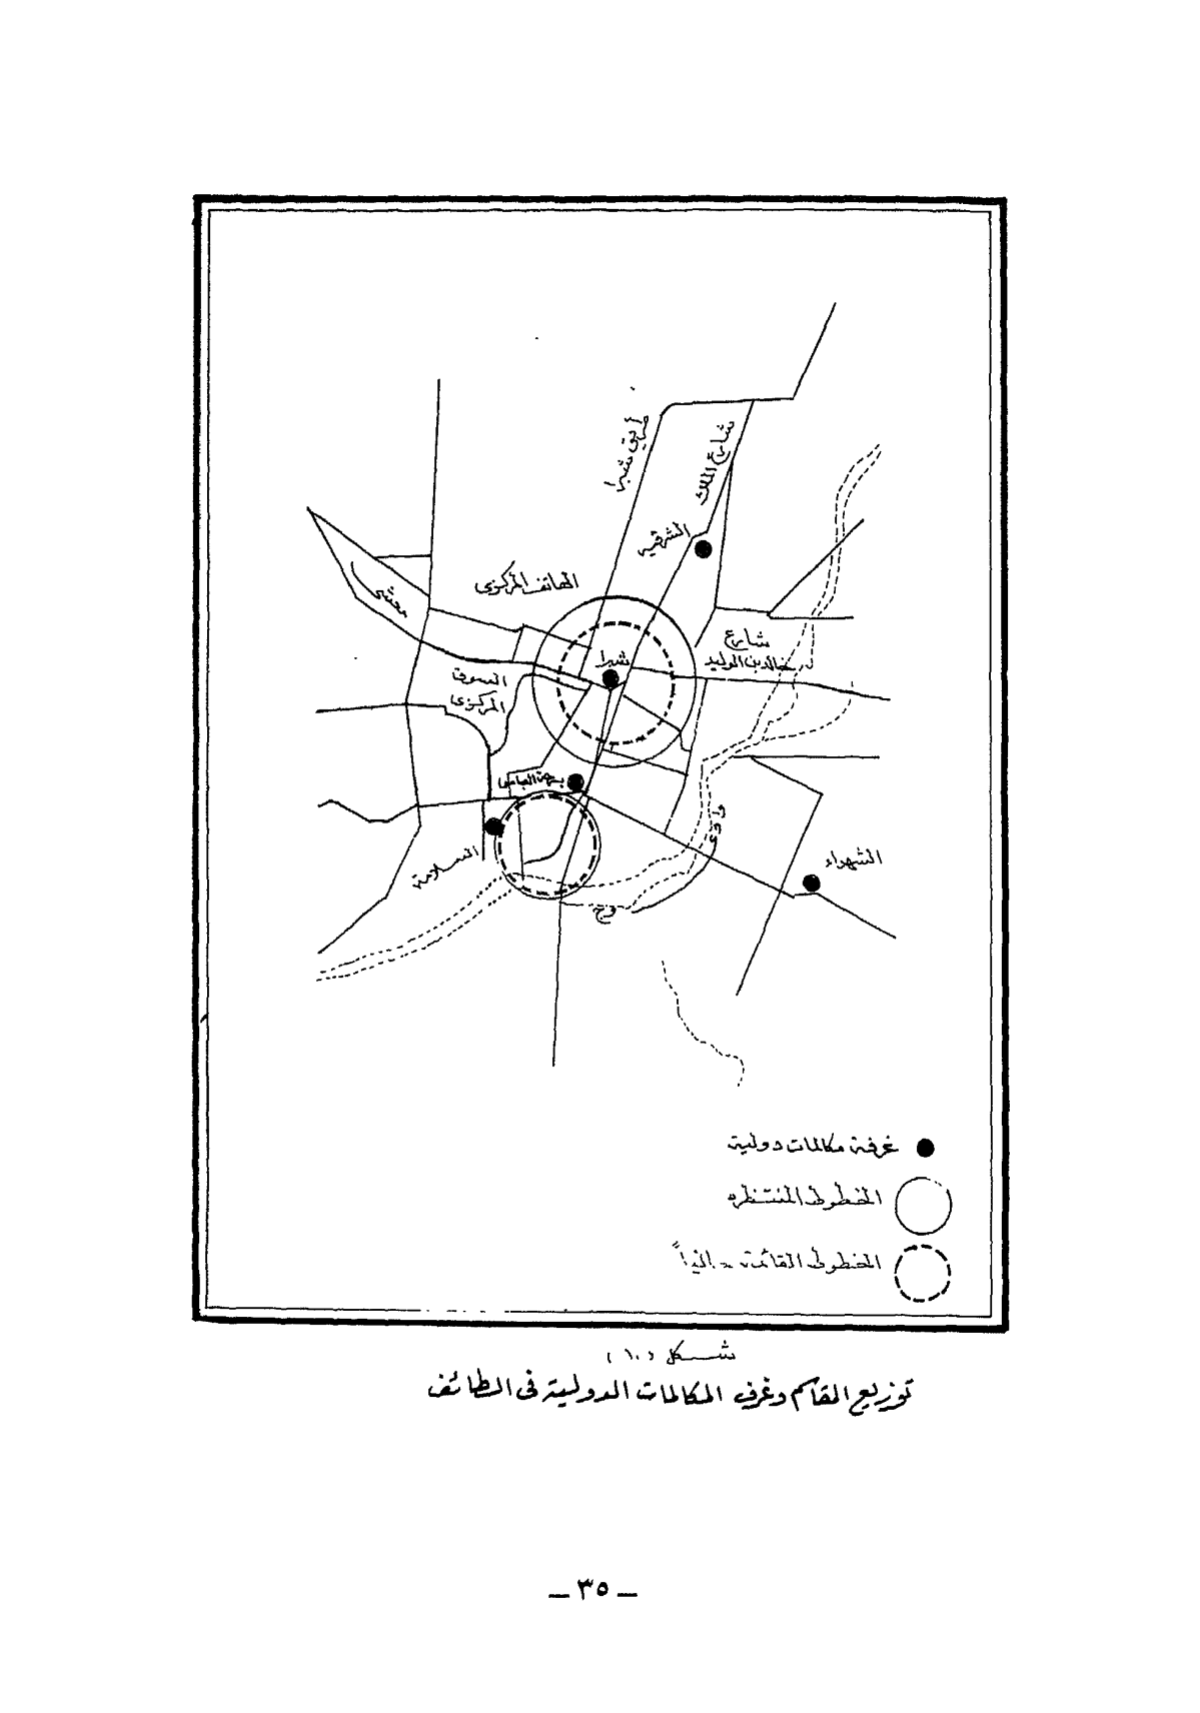 طريق شبرا
شارع الملك
الشرقيه
الهاتف المركزى
معشى
شارع
خالد بن الوليد
شبرا
السوق
المركزى
السلامة
وادى
وج
الشهداء
غرفة مكالمات دولية
الخطوط المنتظره
الخطوط القائمة حالياً
شكل (١٠)
توزيع المقاسم وغرف المكالمات الدولية فى الطائف
ــ ٣٥ ــ